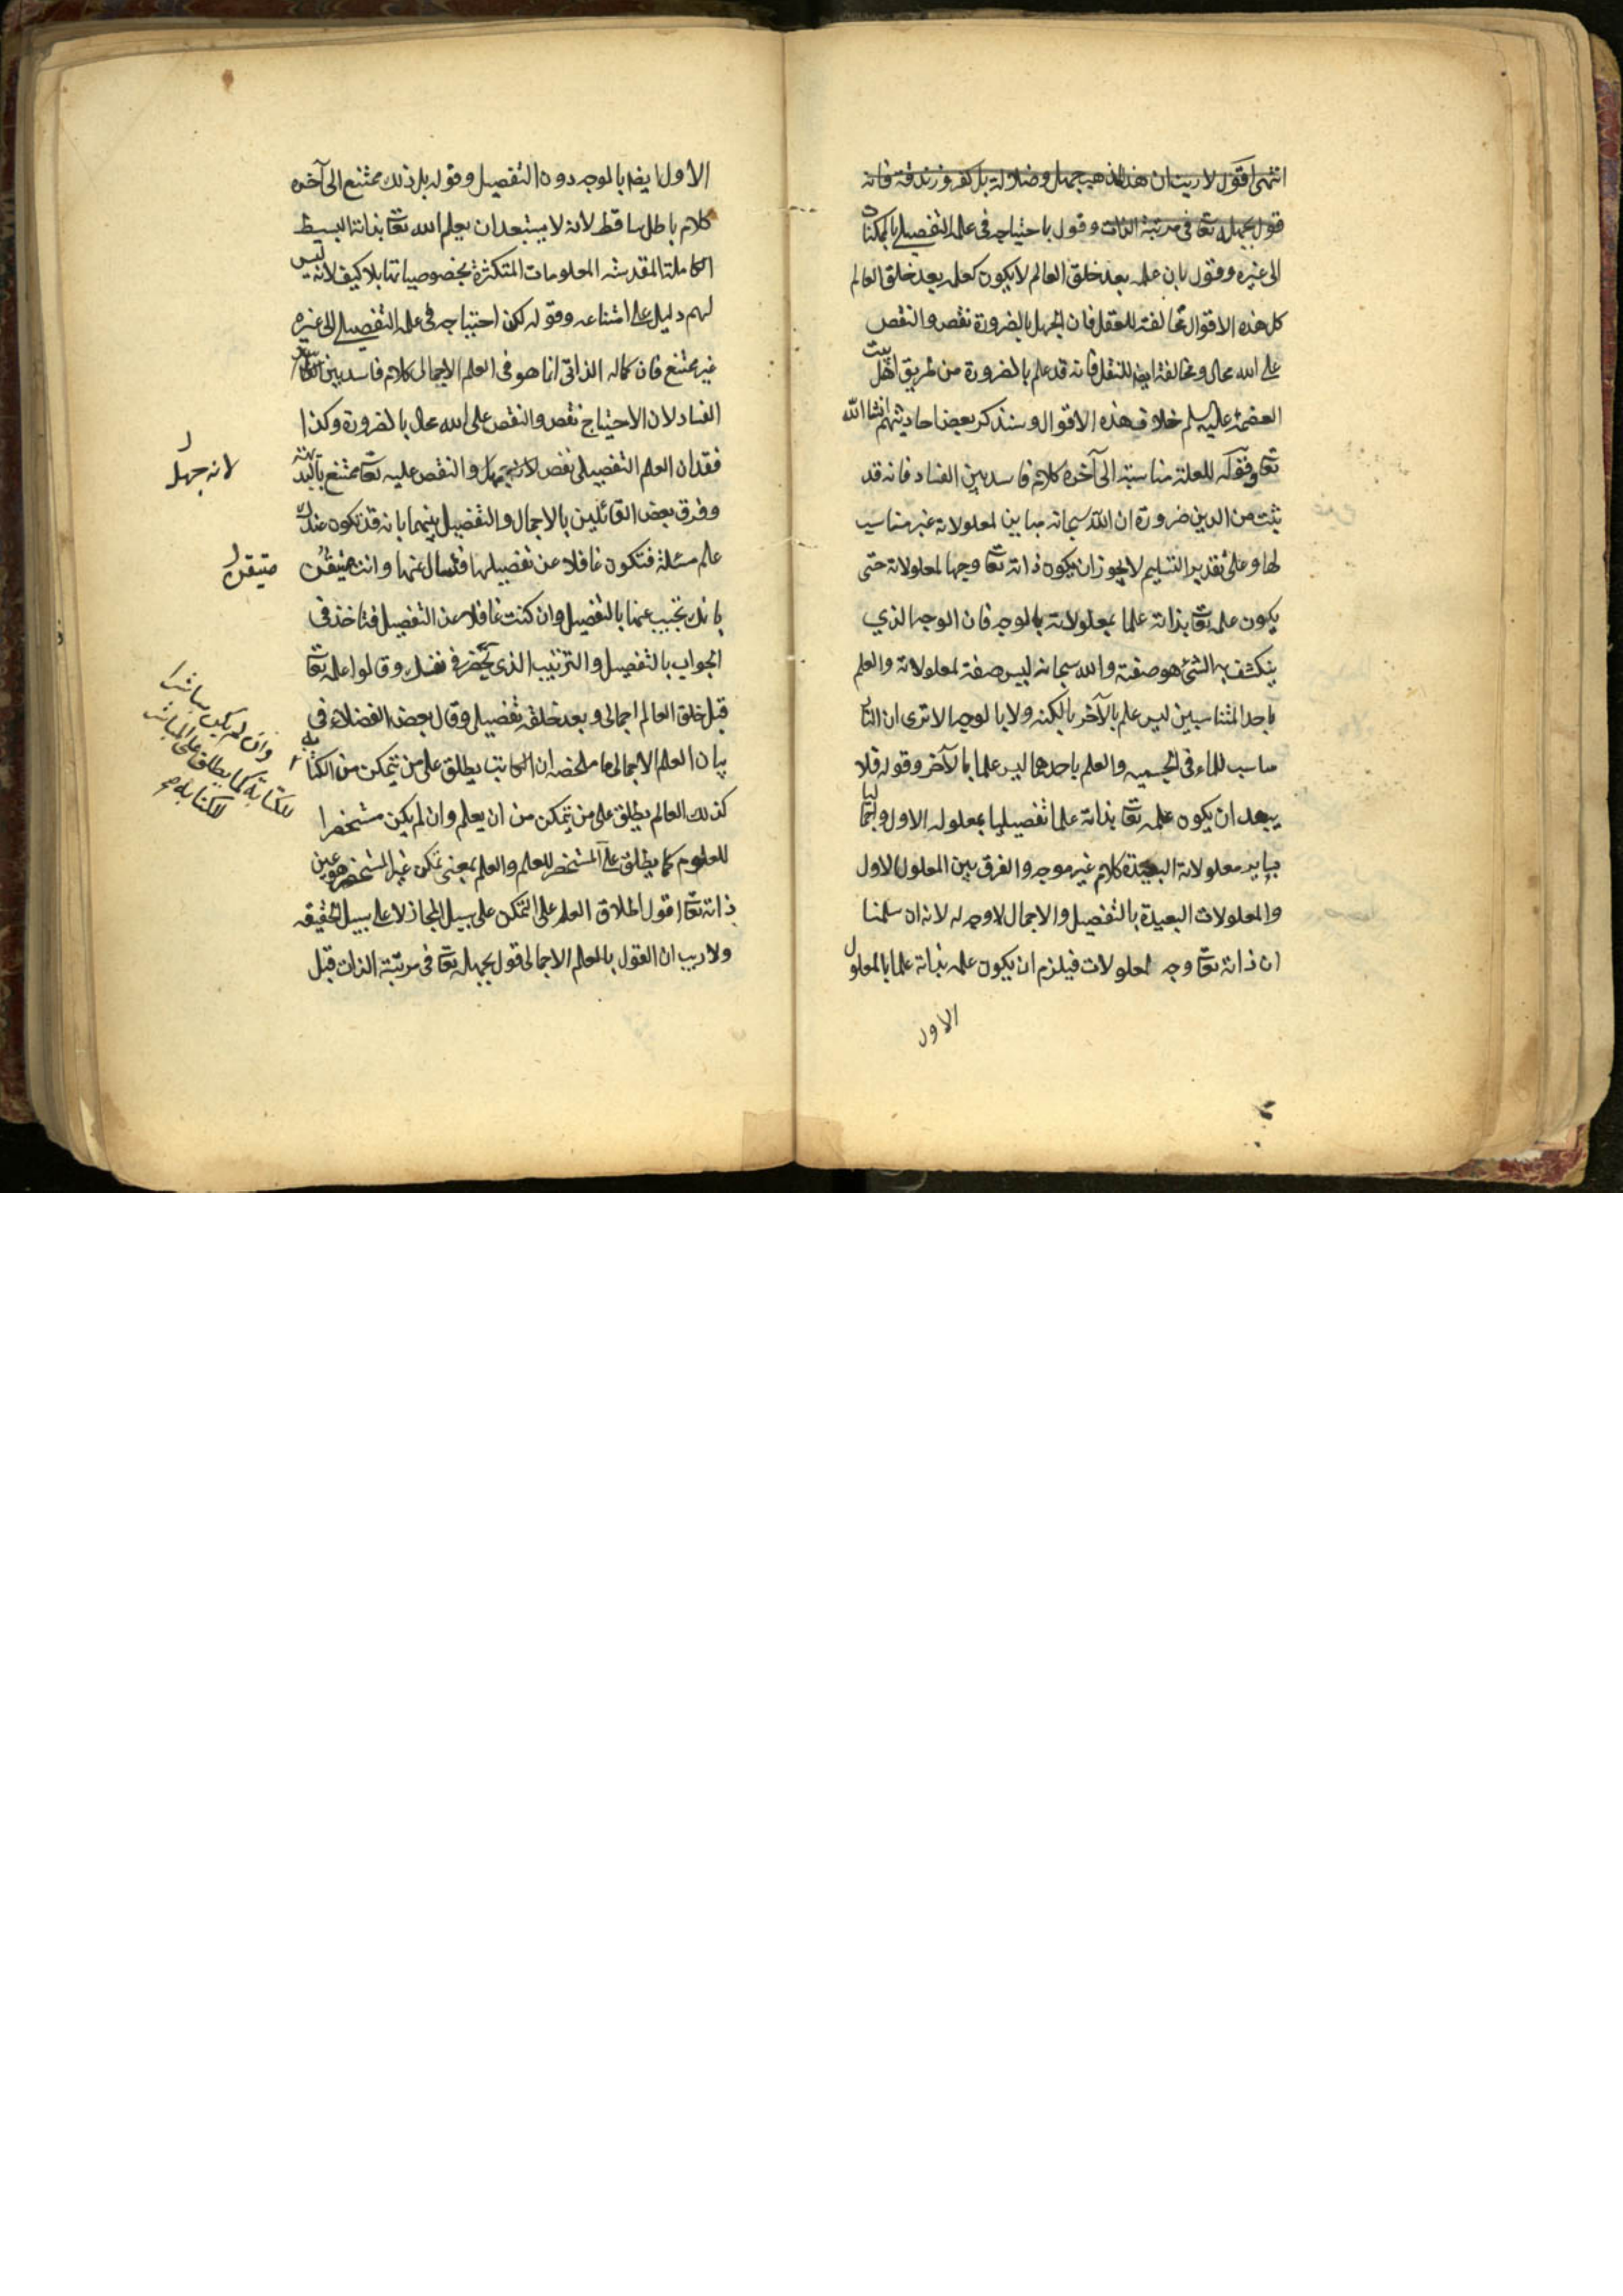 انتهى اقول لا ريب ان هذا المذهب جهل وضلالة بل كفر وزندقة فانه
قول بجهله تعا فى مرتبة الذات وقول باحتياجه فى علمه التفصيلى بالممكنات
الى غيره وقول بان علمه بعد خلق العالم لا يكون كعلمه بعد خلق العالم
كل هذه الاقوال مخالفة للعقل فان الجهل بالضرورة نقص والنقص
على الله محال ومخالفة ايضا للنقل فانه قد علم بالضرورة من طريق اهل بيت
العصمة عليهم خلاف هذه الاقوال وسنذكر بعض احاديثهم انشا الله
تعا وقوله للعلة مناسبة الى آخره كلام فاسد بين الفساد فانه قد
ثبت من الدين ضرورة ان الله سبحانه مباين لمعلولاته غير مناسب
لها وعلى تقدير التسليم لا يجوز ان يكون ذاته تعا وجها لمعلولاته حتى
يكون علمه تعا بذاته علما بمعلولاته بالوجه فان الوجه الذي
ينكشف به الشئ هو صفته والله سبحانه ليس صفة لمعلولاته والعلم
باحد المتناسبين ليس علم بالآخر بالكنه ولا بالوجه الا ترى ان النار
مناسب للماء فى الجسميه والعلم باحدهما ليس علما بالآخر وقوله فلا
يبعد ان يكون علمه تعا بذاته علما تفصيليا بمعلوله الاول واجماليا
بساير معلولاته البعيدة كلام غير موجه والفرق بين المعلول الاول
والمعلولات البعيدة بالتفصيل والاجمال لا وجه له لانه ان سلمنا
ان ذاته تعا وجه لمعلولات فيلزم ان يكون علمه بذاته علما بالمعلول
الاول
الاول ايضا بالوجه دون التفصيل وقوله بل ذلك ممتنع الى آخره
كلام باطل ساقط لانه لا يستبعد ان يعلم الله تعا بذاته البسيط
الكاملة المقدسه المعلومات المتكثرة بخصوصياتها بلا كيف لانه ليس
لهم دليل على امتناعه وقوله لكن احتياجه فى علمه التفصيلى الى غيره
غير ممتنع فان كماله الذاتى انما هو فى العلم الاجمالى كلام فاسد بين
الفساد لان الاحتياج نقص والنقص على الله محال بالضرورة وكذا
فقدان العلم التفصيلى نقص لانه جهل والنقص عليه تعا ممتنع بالبديهة
لانه جهل
وفرق بعض القائلين بالاجمال والتفصيل بينهما بانه قد تكون عندك
علم مسئلة فتكون غافلا عن تفصيلها فتسال عنها وانت متيقن
متيقن
بانك تجيب عنها بالتفصيل وان كنت غافلا عن التفصيل فتاخذ فى
الجواب بالتفصيل والترتيب الذى يحضر فى نفسك وقالوا علمه تعا
قبل خلق العالم اجمالى وبعد خلقه تفصيلى وقال بعض الفضلاء فى
بيان العلم الاجمالى ما ملخصه ان الكاتب يطلق على من يتمكن من الكتابة
وان لم يكن مباشرا
للكتابة كما يطلق على المباشر
للكتابة صح
كذلك العالم يطلق على من يتمكن من ان يعلم وان لم يكن مستحضرا
للعلوم كما يطلق على المستحضر للعلم والعلم بمعنى تمكن غير المستحضر هو عين
ذاته تعا اقول اطلاق العلم على التمكن على سبيل المجاز لا على سبيل الحقيقه
ولا ريب ان القول بالعلم الاجمالى قول بجهله تعا فى مرتبة الذات قبل